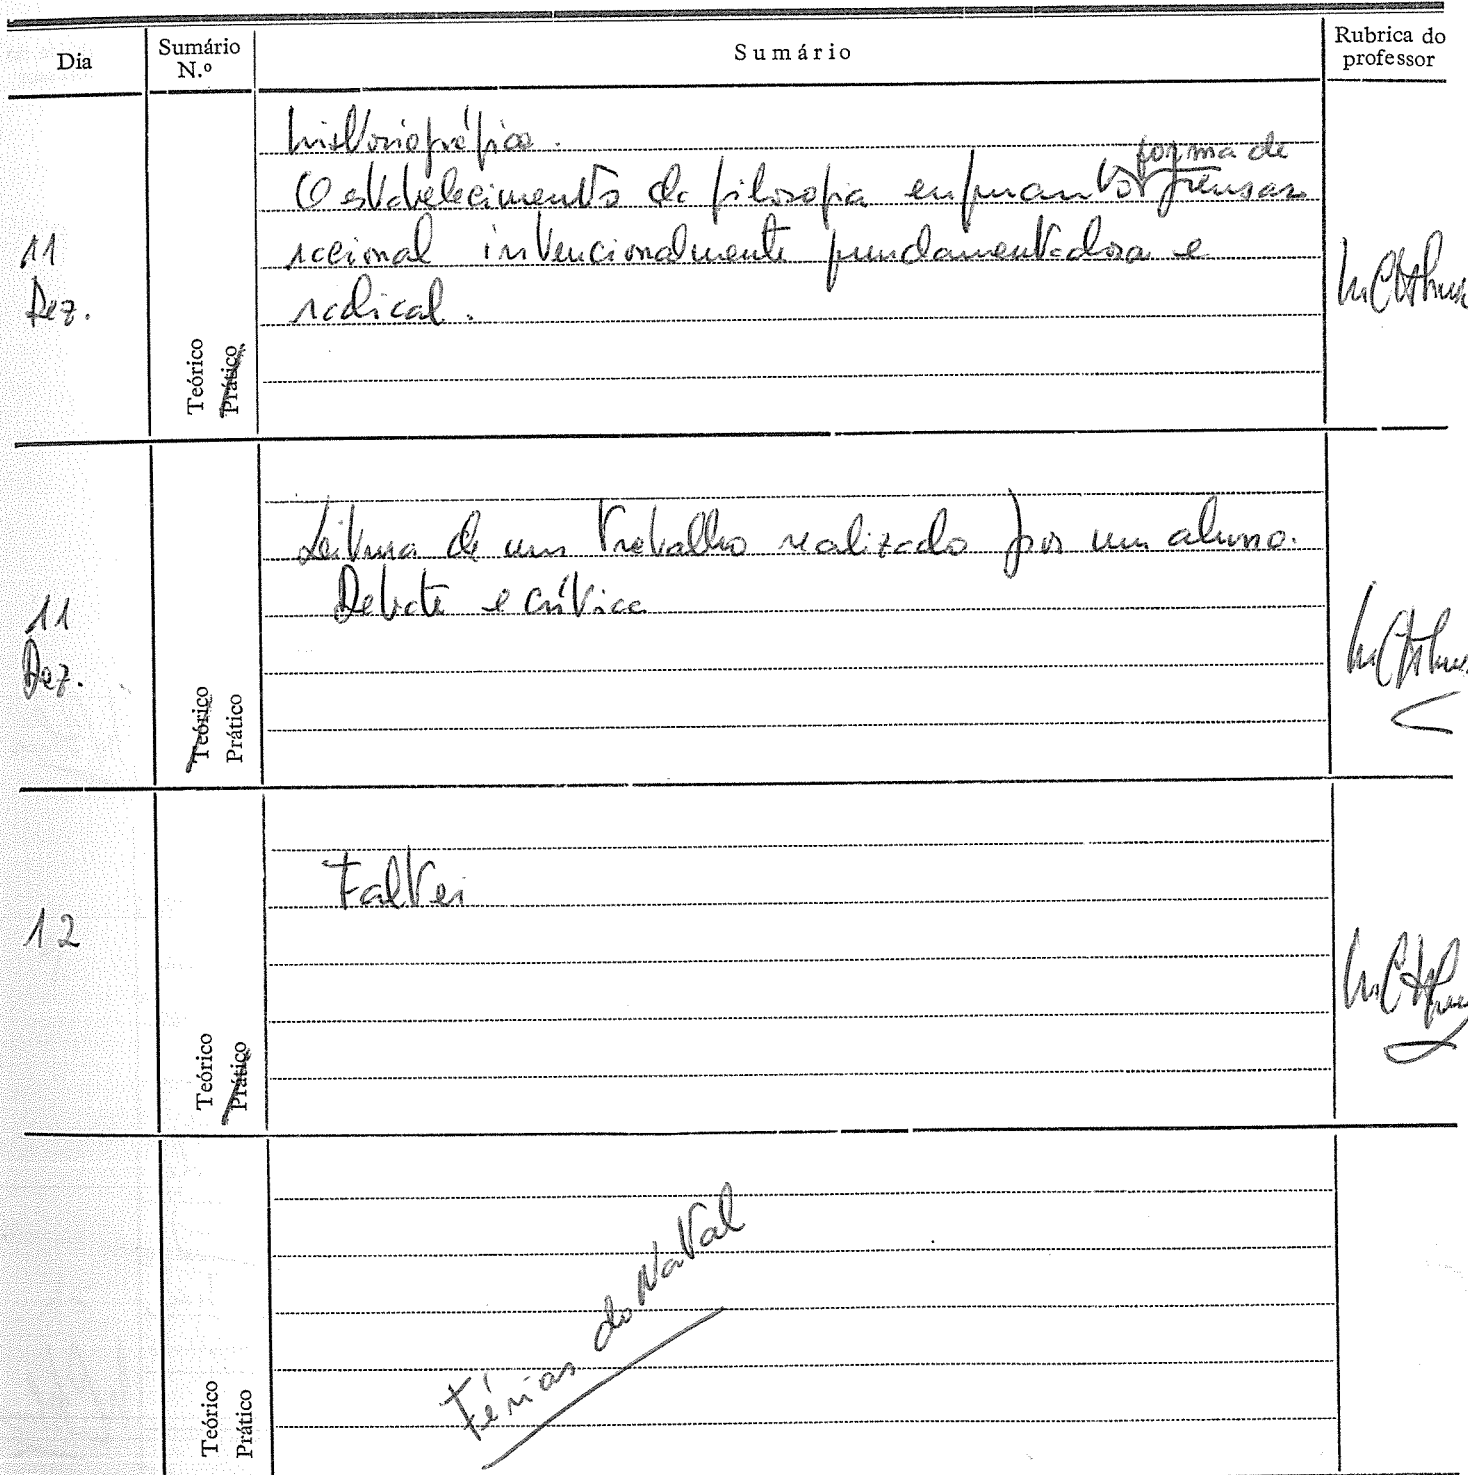 Dia
Sumário
N.º
Sumário
Rubrica do
professor
historiográfica.
O estabelecimento da filosofia enquanto forma de pensar
racional intencionalmente fundamentadora e
radical.
11
Dez.
Teórico
Prático
Leitura de um trabalho realizado por um aluno.
Debate e crítica
11
Dez.
Teórico
Prático
Faltei
12
Teórico
Prático
Férias do Natal
Teórico
Prático